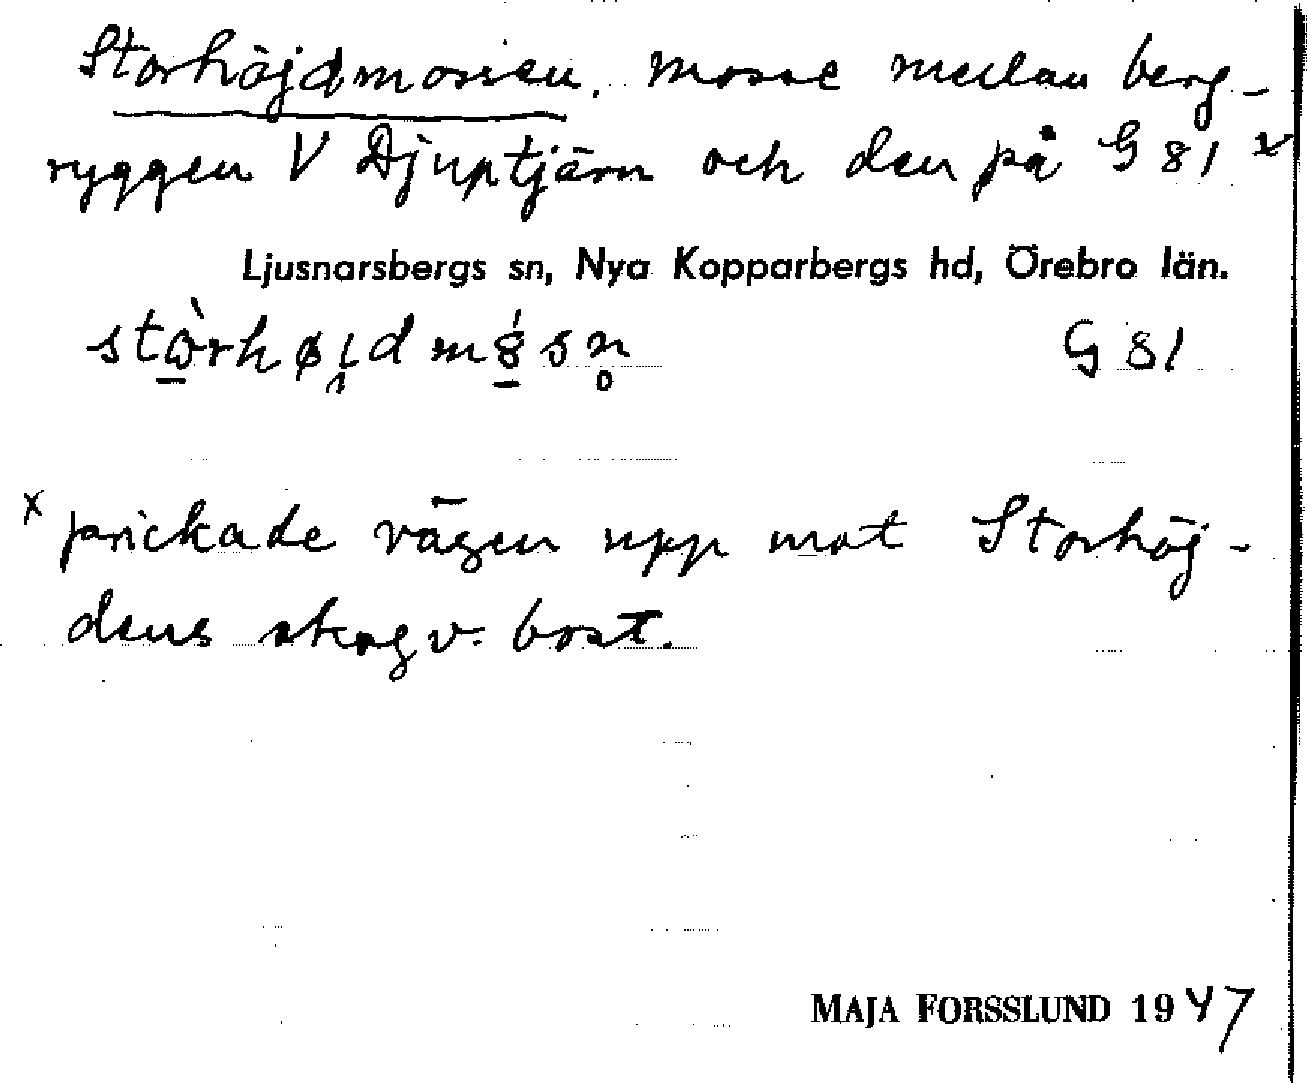 Storhöjdmossen. mosse mellan berg-
ryggen V Djuptjärn och den på G 81 x
Ljusnarsbergs sn, Nya Kopparbergs hd, Örebro län.
G 81
x prickade vägen upp mot Storhöj-
dens skogv. bost.
MAJA FORSSLUND 1947